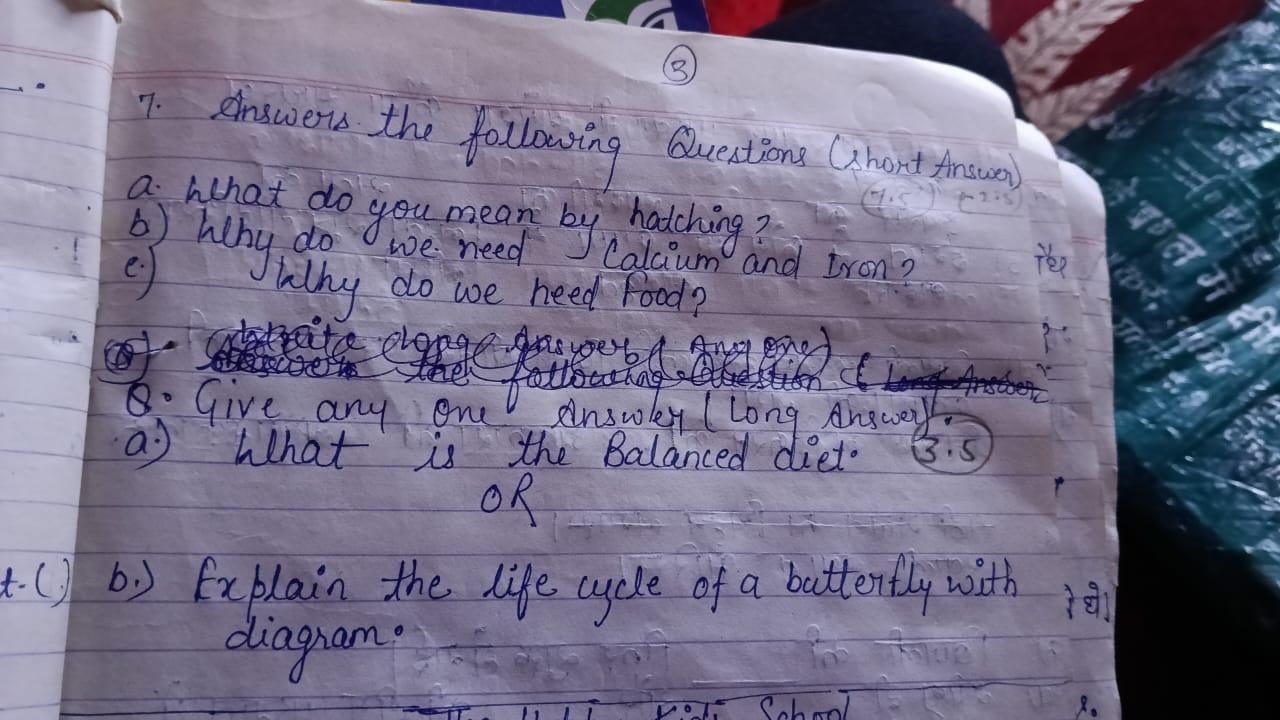 3
7. Answers the following Questions (short Answer)
(7.5) (2.5)
a. What do you mean by hatching?
b) Why do we need Calcium and Iron?
c.) Why do we need food?
Write long Answer ( Any one)
the following Question ( Long Answer
8. Give any one Answer (Long Answer).
a.) What is the Balanced diet. 3.5
OR
t. ( ) b.) Explain the life cycle of a butterfly with
diagram.
Kids School